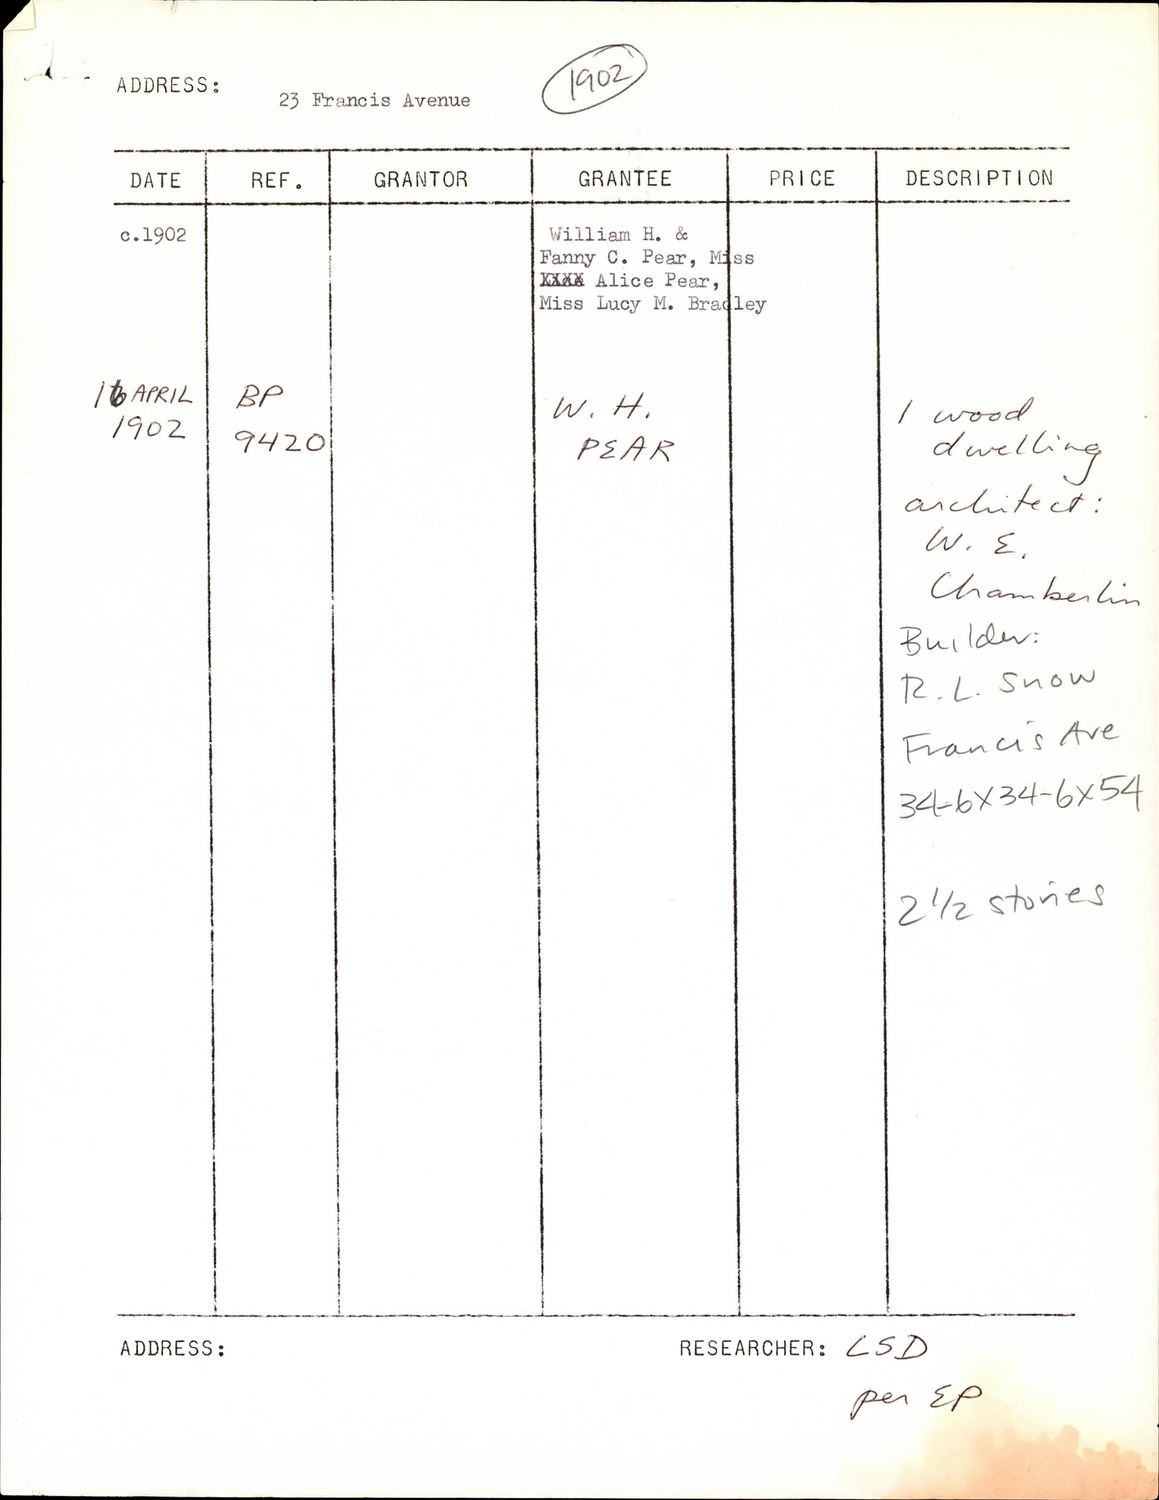 ADDRESS: 23 Francis Avenue
1902
DATE REF. GRANTOR GRANTEE PRICE DESCRIPTION
c.1902 William H. &
Fanny C. Pear, Miss
XXXX Alice Pear,
Miss Lucy M. Bradley
16 APRIL
1902
BP
9420
W. H.
PEAR
1 wood
dwelling
architect:
W. E.
Chamberlin
Builder:
R. L. Snow
Francis Ave
34-6X34-6X54
2 1/2 stories
ADDRESS:
RESEARCHER: LSD
per EP